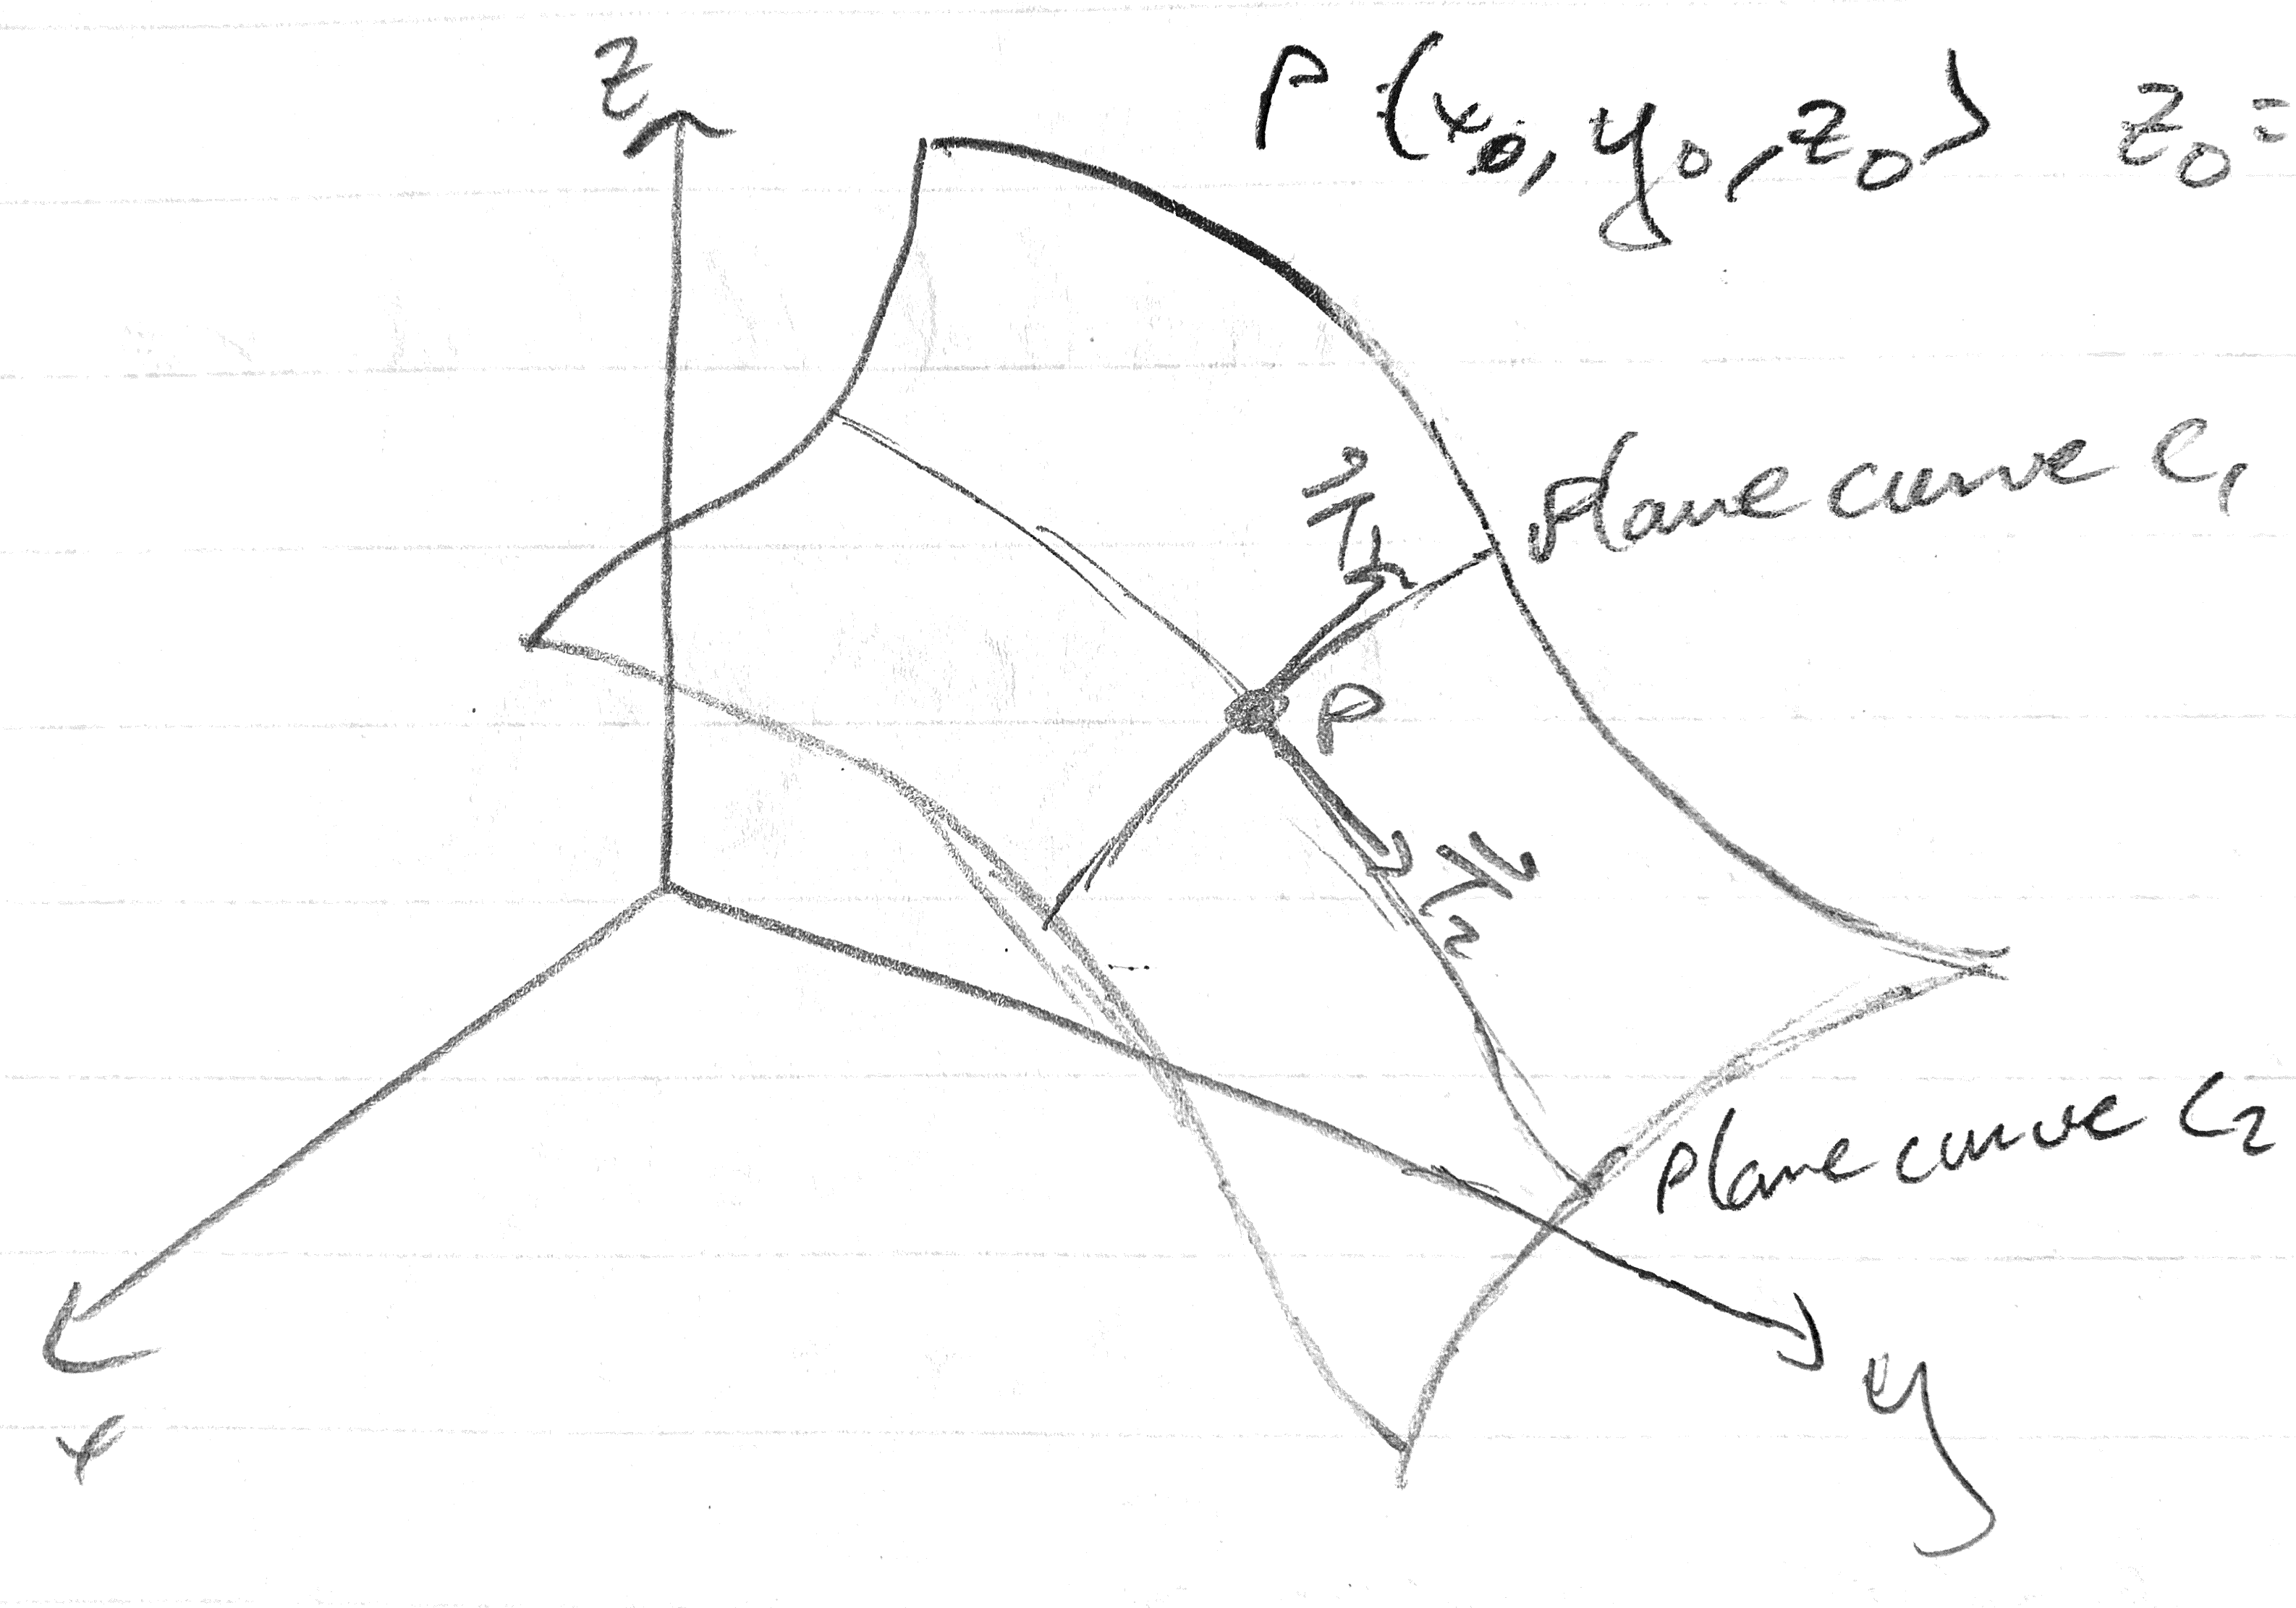 z
P(x₀, y₀, z₀) z₀ =
plane curve C₁
T₁
P
T₂
plane curve C₂
x
y